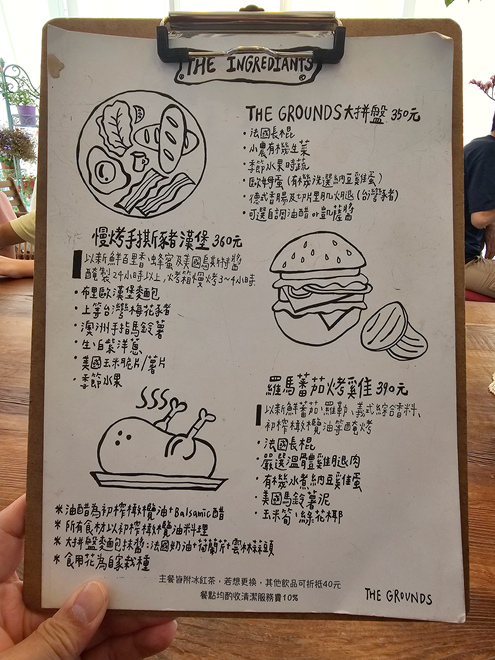 THE INGREDIANTS
THE GROUNDS大拼盤 350元
・法國長棍
・小農有機生菜
・季節水果時蔬
・歐姆蛋(有機洗選納豆雞蛋)
・德式香腸及切片里肌火腿(台灣豬)
・可選自調油醋 or 凱薩醬
慢烤手撕豬漢堡 360元
以新鮮百里香、蜂蜜及美國烏斯特醬
醃製24小時以上,烤箱慢烤3~4小時
・布里歐漢堡麵包
・上等台灣梅花豬
・澳洲手指馬鈴薯
・生、白紫洋蔥
・美國玉米脆片/薯片
・季節水果
羅馬蕃茄烤雞 390元
以新鮮蕃茄、羅勒、義式綜合香料、
初榨橄欖油等醃烤
・法國長棍
・嚴選溫體雞腿肉
・有機水煮納豆雞蛋
・美國馬鈴薯泥
・玉米筍、綠花椰
*油醋為初榨橄欖油+Balsamic醋
*所有食材以初榨橄欖油料理
*大拼盤麵包抹醬:法國奶油+葡萄片+雲林蒜頭
*食用花為自家栽種
主餐皆附冰紅茶,若想更換,其他飲品可折抵40元
餐點均酌收清潔服務費10%
THE GROUNDS